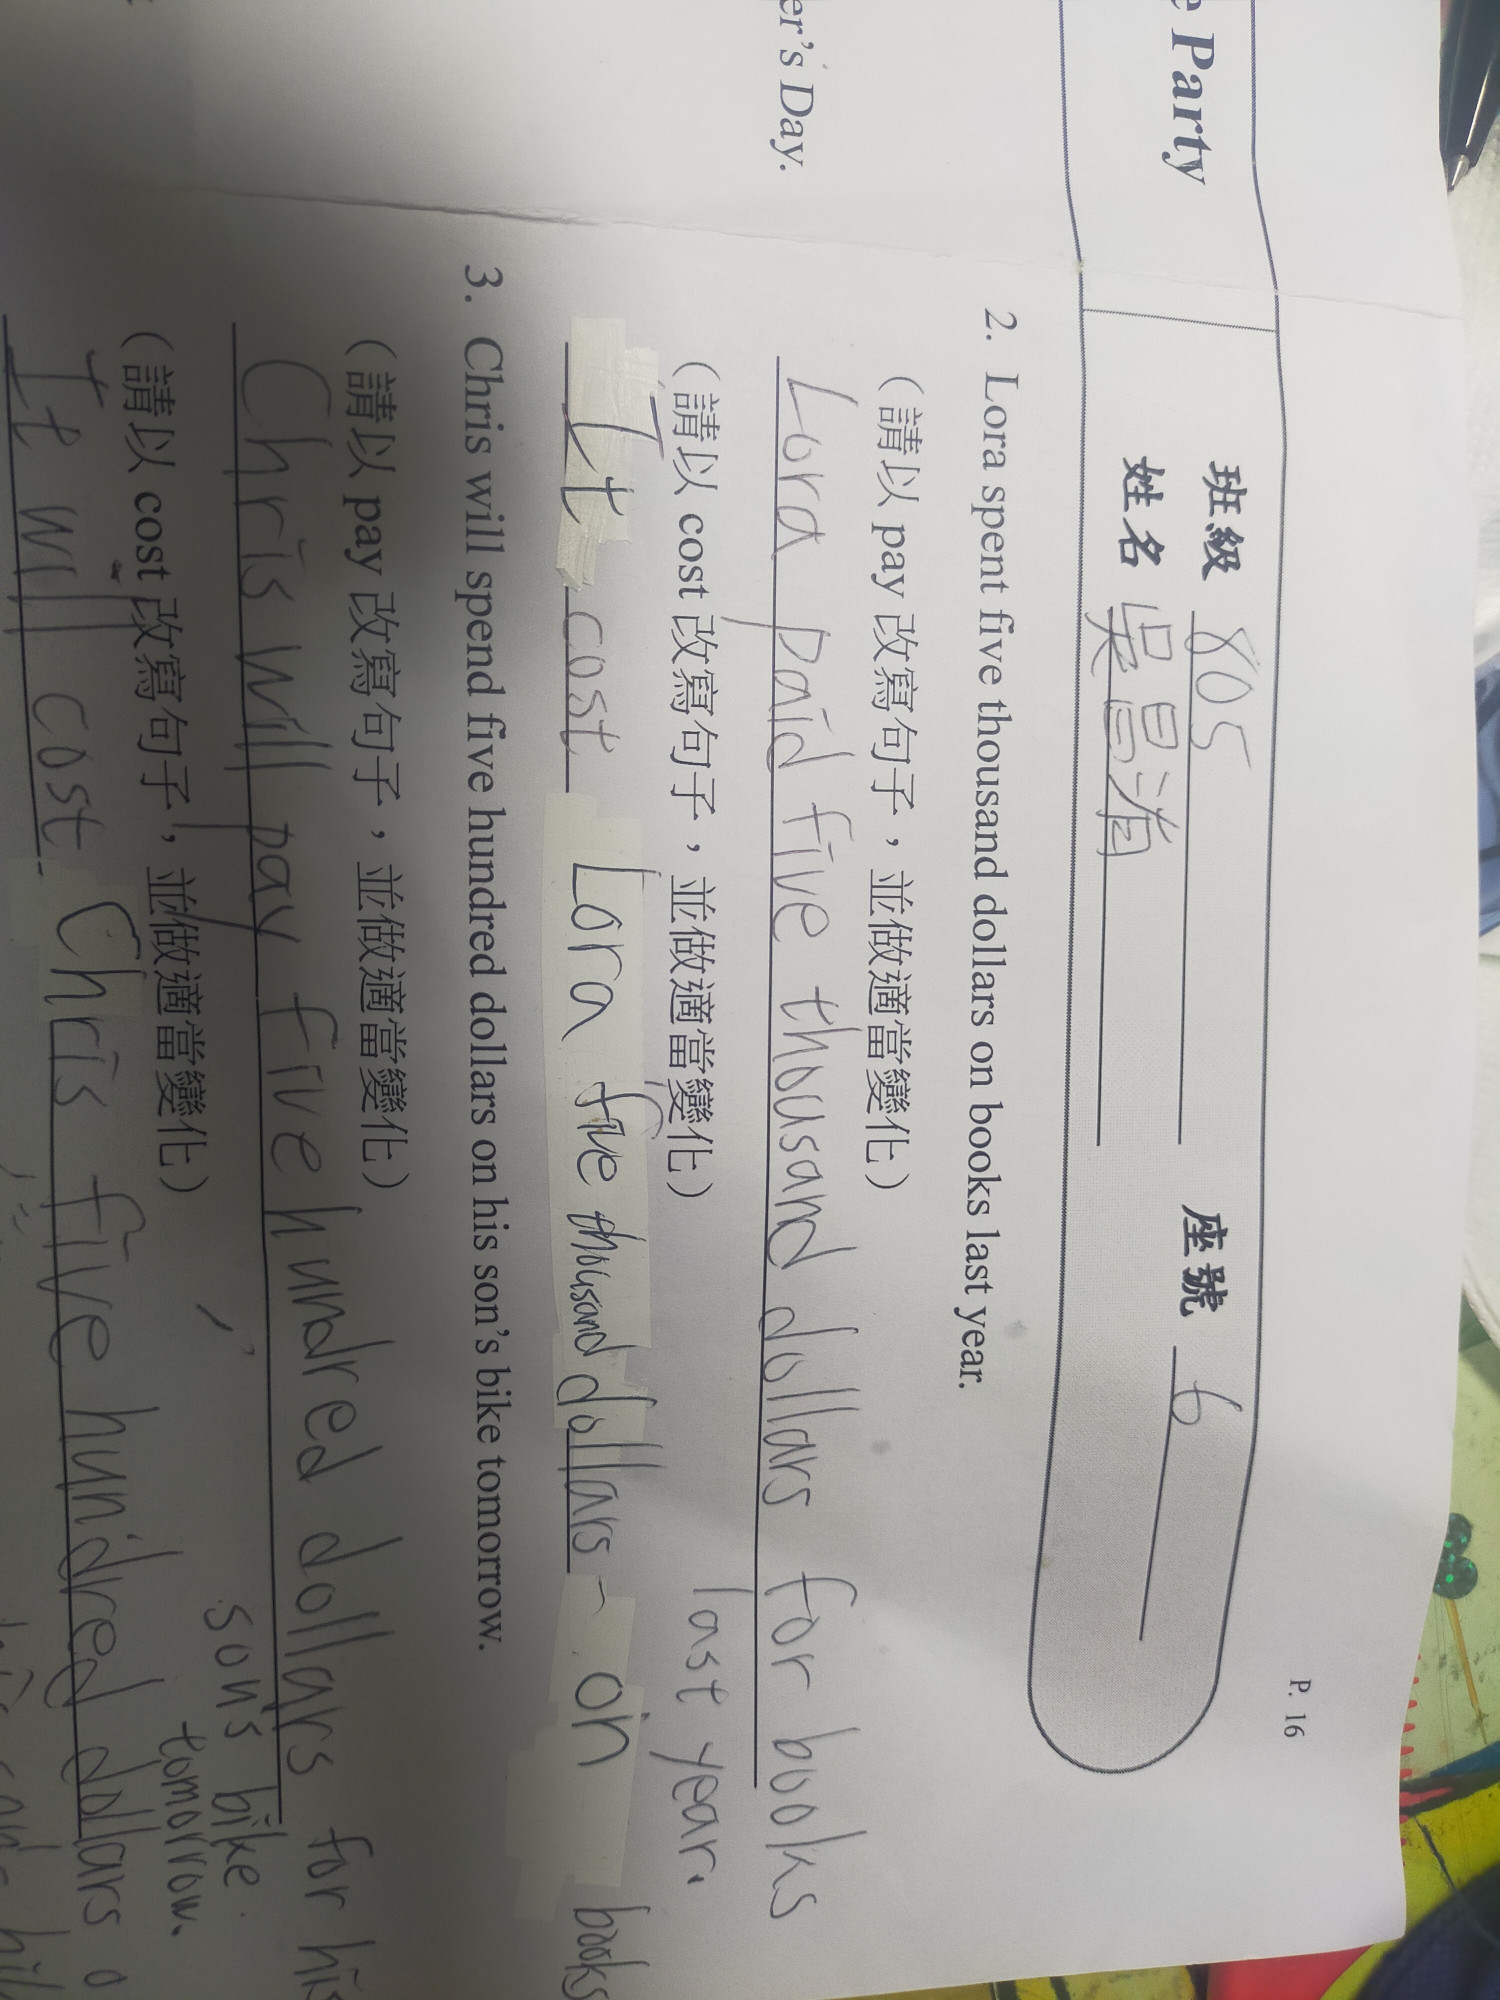 P. 16
e Party
班級 805 座號 6
姓名 吳昌
er's Day.
2. Lora spent five thousand dollars on books last year.
(請以 pay 改寫句子，並做適當變化)
Lora paid five thousand dollars for books
last year.
(請以 cost 改寫句子，並做適當變化)
It cost Lora five thousand dollars on books
3. Chris will spend five hundred dollars on his son's bike tomorrow.
(請以 pay 改寫句子，並做適當變化)
Chris will pay five hundred dollars for his
son's bike
tomorrow.
(請以 cost 改寫句子，並做適當變化)
It will cost Chris five hundred dollars